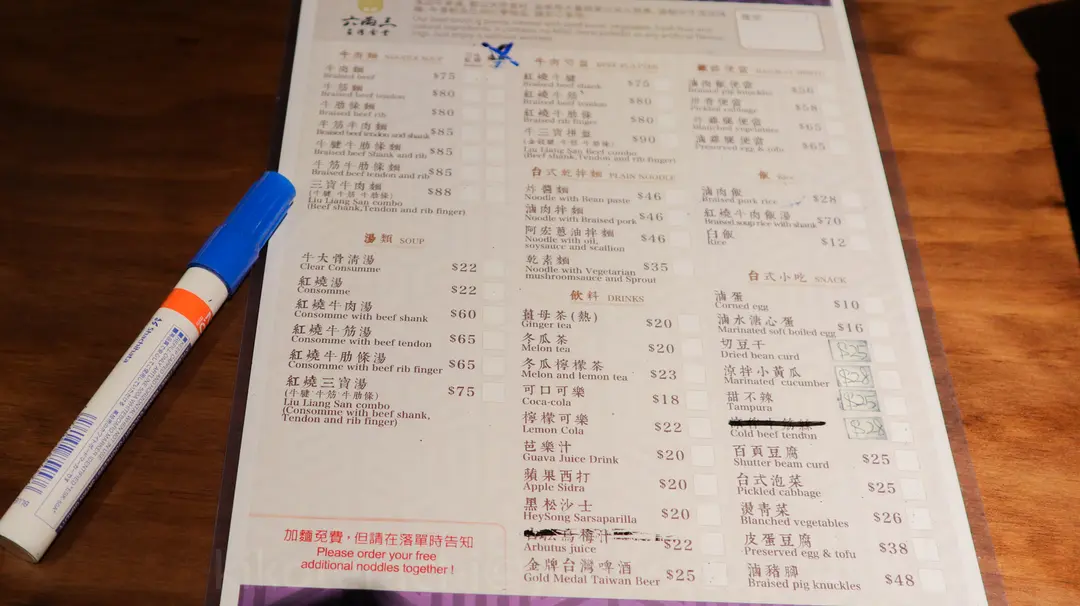 六兩三
牛肉麵
牛肉麵 $75
Braised beef
牛筋麵 $80
Braised beef tendon
牛肋條麵 $80
Braised beef rib
牛筋牛肉麵 $85
Braised beef tendon and shank
牛腱牛肋條麵 $85
Braised beef Shank and rib
牛筋牛肋條麵 $85
Braised beef tendon and rib
三寶牛肉麵 $88
(牛腱 牛筋 牛肋條)
Liu Liang San combo
(Beef shank,Tendon and rib finger)
湯類 SOUP
牛大骨清湯 $22
Clear Consumme
紅燒湯 $22
Consomme
紅燒牛肉湯 $60
Consomme with beef shank
紅燒牛筋湯 $65
Consomme with beef tendon
紅燒牛肋條湯 $65
Consomme with beef rib finger
紅燒三寶湯 $75
(牛腱 牛筋 牛肋條)
Liu Liang San combo
(Consomme with beef shank,
Tendon and rib finger)
加麵免費，但請在落單時告知
Please order your free
additional noddles together !
紅燒牛腱 $75
Braised beef shank
紅燒牛筋 $80
Braised beef tendon
紅燒牛肋條 $80
Braised rib finger
牛三寶拼盤 $90
Liu Liang San Beef combo
(Beef shank,Tendon and rib finger)
台式乾拌麵 PLAIN NOODLE
炸醬麵 $46
Noodle with Bean paste
滷肉拌麵 $46
Noodle with Braised pork
阿宏蔥油拌麵 $46
Noodle with oil,
soysauce and scallion
乾素麵 $35
Noodle with Vegetarian
mushroomsauce and Sprout
飲料 DRINKS
薑母茶(熱) $20
Ginger tea
冬瓜茶 $20
Melon tea
冬瓜檸檬茶 $23
Melon and lemon tea
可口可樂 $18
Coca-cola
檸檬可樂 $22
Lemon Cola
芭樂汁 $20
Guava Juice Drink
蘋果西打 $20
Apple Sidra
黑松沙士 $20
HeySong Sarsaparilla
$22
Arbutus juice
金牌台灣啤酒 $25
Gold Medal Taiwan Beer
滷肉飯便當 $56
Braised pig knuckles
排骨便當 $58
Pickled cabbage
炸雞腿便當 $65
Blanched vegetables
滷雞腿便當 $65
Preserved egg & tofu
飯 Rice
滷肉飯 $28
Braised pork rice
紅燒牛肉飯湯 $70
Braised soup rice with shank
白飯 $12
Rice
台式小吃 SNACK
滷蛋 $10
Corned egg
滷水溏心蛋 $16
Marinated soft boiled egg
切豆干 $25
Dried bean curd
涼拌小黃瓜 $28
Marinated cucumber
甜不辣 $25
Tampura
$28
Cold beef tendon
百頁豆腐 $25
Shutter beam curd
台式泡菜 $25
Pickled cabbage
燙青菜 $26
Blanched vegetables
皮蛋豆腐 $38
Preserved egg & tofu
滷豬腳 $48
Braised pig knuckles